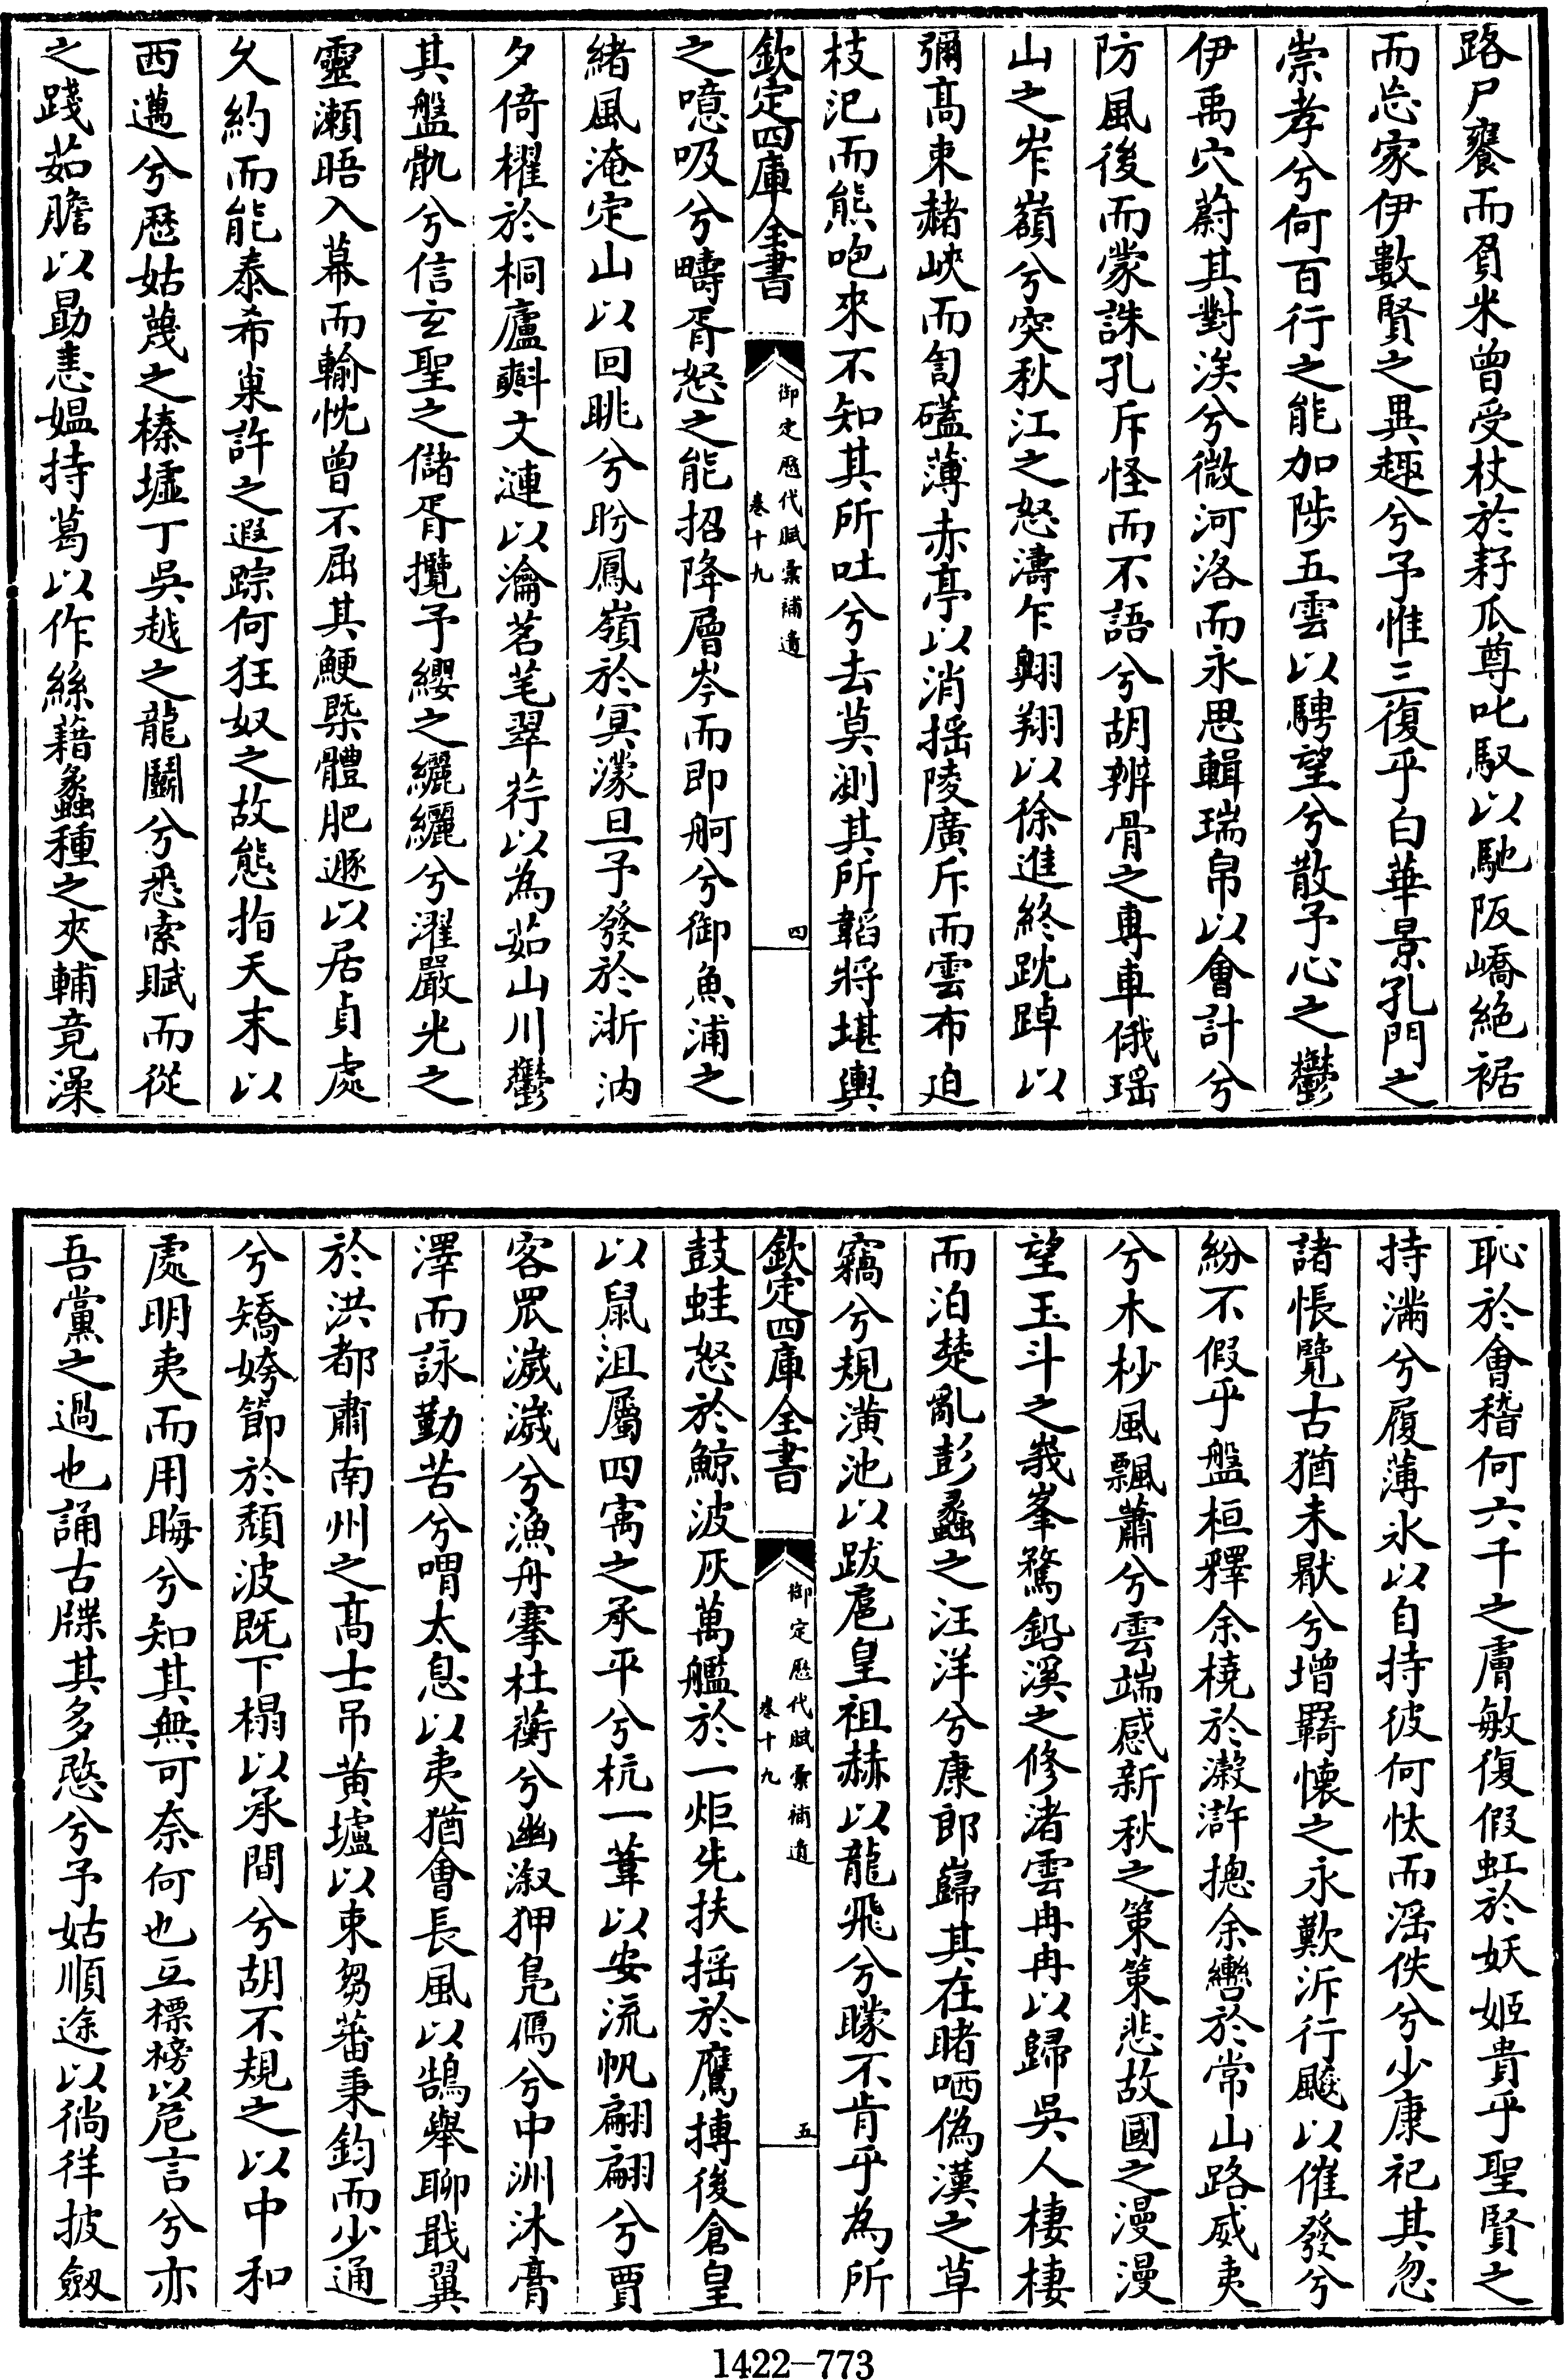 路尸饔而負米曾受杖於耔瓜尊叱馭以馳阪嶠絶裾
而忘家伊數賢之異趣兮予惟三復乎白華景孔門之
崇孝兮何百行之能加陟五雲以騁望兮散予心之鬱
伊禹穴蔚其對涘兮微河洛而永思輯瑞帛以會計兮
防風後而蒙誅孔斥怪而不語兮胡辨骨之專車俄瑶
山之岞嶺兮突秋江之怒濤乍翱翔以徐進終踸踔以
彌高束赭峽而訇磕薄赤亭以消揺陵廣斥而雲布迫
枝汜而熊咆來不知其所吐兮去莫測其所韜將堪輿
欽定四庫全書
御定歷代賦彙補遺
卷十九
四
之噫吸兮疇胥怒之能招降層岑而即舸兮御魚浦之
緒風淹定山以回眺兮盻鳳嶺於冥濛旦予發於浙汭
夕倚櫂於桐廬㪺文漣以瀹茗芼翠荇以為茹山川鬱
其盤骩兮信玄聖之儲胥攬予纓之纚纚兮濯嚴光之
靈瀬晤入幕而輸忱曾不屈其鯁槩體肥遯以居貞處
久約而能泰希巢許之遐踪何狂奴之故態指天末以
西邁兮歴姑蔑之榛墟丁吳越之龍鬬兮悉索賦而從
之踐茹膽以勗恚媪持葛以作絲藉蠡種之夾輔竟澡
恥於會稽何六千之膚敏復假虹於妖姬貴乎聖賢之
持滿兮履薄氷以自持彼何忲而滛佚兮少康祀其忽
諸悵覽古猶未厭兮增羇懷之永歎泝行颷以催發兮
紛不假乎盤桓釋余橈於瀔滸摠余轡於常山路威夷
兮木杪風飄蕭兮雲端感新秋之策策悲故國之漫漫
望玉斗之峩峯騖鉛溪之修渚雲冉冉以歸吳人棲棲
而泊楚亂彭蠡之汪洋兮康郎巋其在睹哂偽漢之草
竊兮規潢池以跋扈皇祖赫以龍飛兮矇不肯乎為所
欽定四庫全書
御定歷代賦彙補遺
卷十九
五
鼓蛙怒於鯨波灰萬艦於一炬先扶揺於鷹搏後倉皇
以鼠沮屬四㝢之承平兮杭一葦以安流帆翩翩兮賈
客罛濊濊兮漁舟搴杜蘅兮幽溆狎鳬鴈兮中洲沐膏
澤而詠勤苦兮喟太息以夷猶會長風以鵠舉聊戢翼
於洪都肅南州之高士吊黄壚以束芻蕃秉鈞而少通
兮矯姱節於頽波既下榻以承間兮胡不規之以中和
處明夷而用晦兮知其無可奈何也亙標榜以危言兮亦
吾黨之過也誦古牒其多慜兮予姑順途以徜徉披劔
1422—773